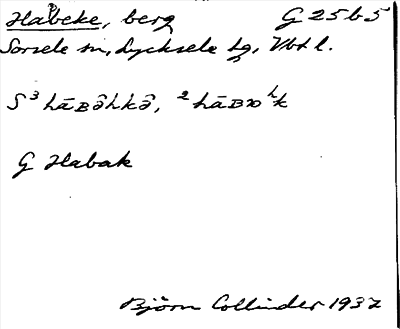 Habeke, berg G 25b5
Sorsele sn, Lycksele lg, Vbtl.
S³ hāBəhkə̂, ²hāBɒʰk
G Habak
Björn Collinder 1937